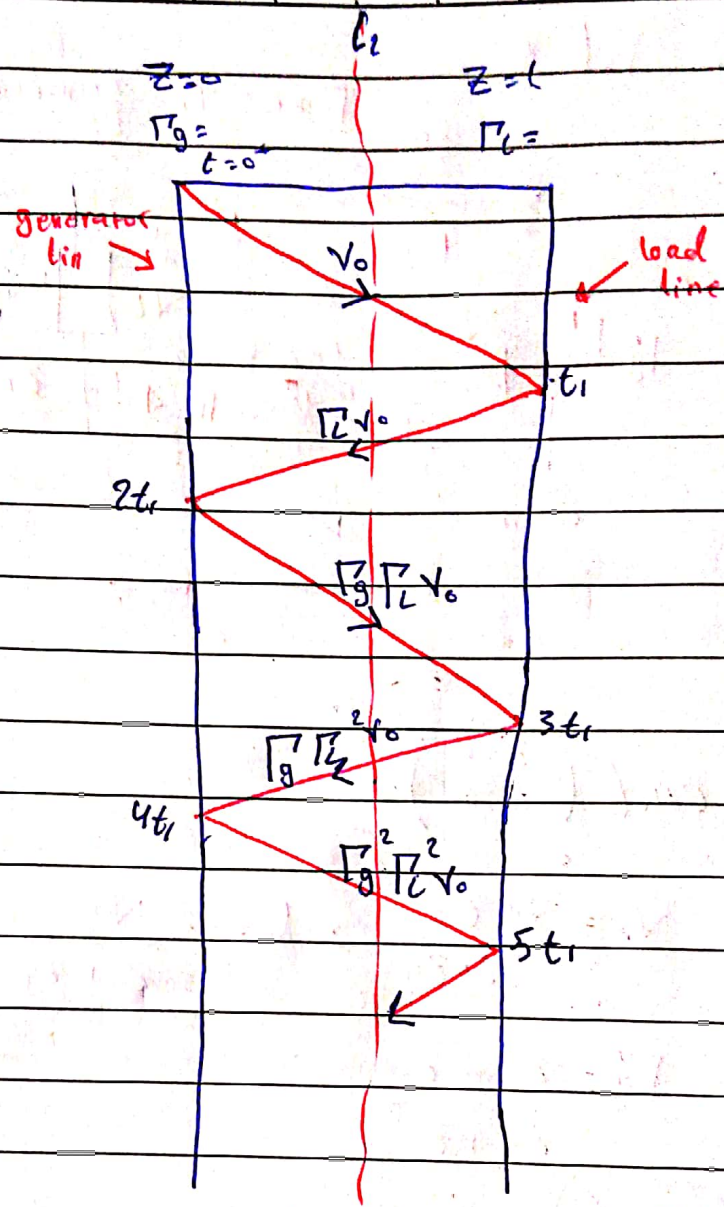 l₂
Z=0 Z=l
Γg= ΓL=
t=0
generator
lin
load
line
V₀
t₁
ΓL V₀
2t₁
Γg ΓL V₀
3t₁
Γg ΓL² V₀
4t₁
Γg² ΓL² V₀
5t₁